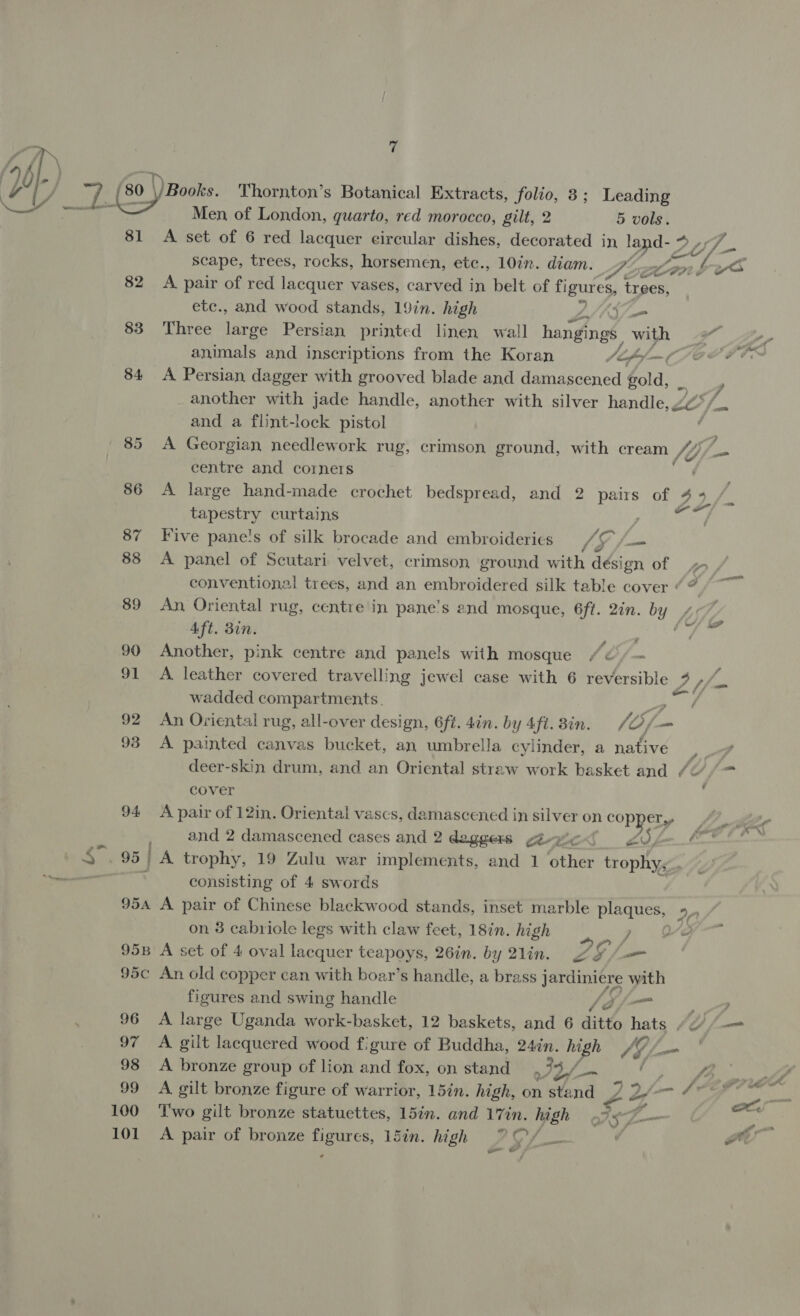 7
80 Books. Thornton's Botanical Extracts, folio, 3; Leading
Men of London, quarto, red morocco, gilt, 2 5 vols.
81 A set of 6 red lacquer circular dishes, decorated in land-
scape, trees, rocks, horsemen, etc., 10in. diam.
82 A pair of red lacquer vases, carved in belt of figures, trees,
etc., and wood stands, 19in. high
83 Three large Persian printed linen wall hangings with
animals and inscriptions from the Koran
84 A Persian dagger with grooved blade and damascened gold,
another with jade handle, another with silver handle,
and a flint-lock pistol
85 A Georgian needlework rug, crimson ground, with cream
centre and corners
86 A large hand-made crochet bedspread, and 2 pairs of
tapestry curtains
87 Five panels of silk brocade and embroideries
88 A panel of Scutari velvet, crimson ground with design of
conventional trees, and an embroidered silk table cover
89 An Oriental rug, centre in panels and mosque, 6ft. 2in. by
4ft. 3in.
90 Another, pink centre and panels with mosque
91 A leather covered travelling jewel case with 6 reversible
wadded compartments.
92 An Oriental rug, all-over design, 6ft. 4in. by 4ft. 3in.
93 A painted canvas bucket, an umbrella cylinder, a native
deer-skin drum, and an Oriental straw work basket and
cover
94 A pair of 12in. Oriental vases, damascened in silver on copper,
and 2 damascened cases and 2 daggers
95 A trophy, 19 Zulu war implements, and 1 other trophy,
consisting of 4 swords
95A A pair of Chinese blackwood stands, inset marble plaques,
on 3 cabriole legs with claw feet, 18in. high
95B A set of 4 oval lacquer teapoys, 26in. by 21in.
95C An old copper can with boar's handle, a brass jardinière with
figures and swing handle
96 A large Uganda work-basket, 12 baskets, and 6 ditto hats
97 A gilt lacquered wood figure of Buddha, 24in. high
98 A bronze group of lion and fox, on stand
99 A gilt bronze figure of warrior, 15in. high, on stand
100 Two gilt bronze statuettes, 15in. and 17in. high
101 A pair of bronze figures, 15in. high